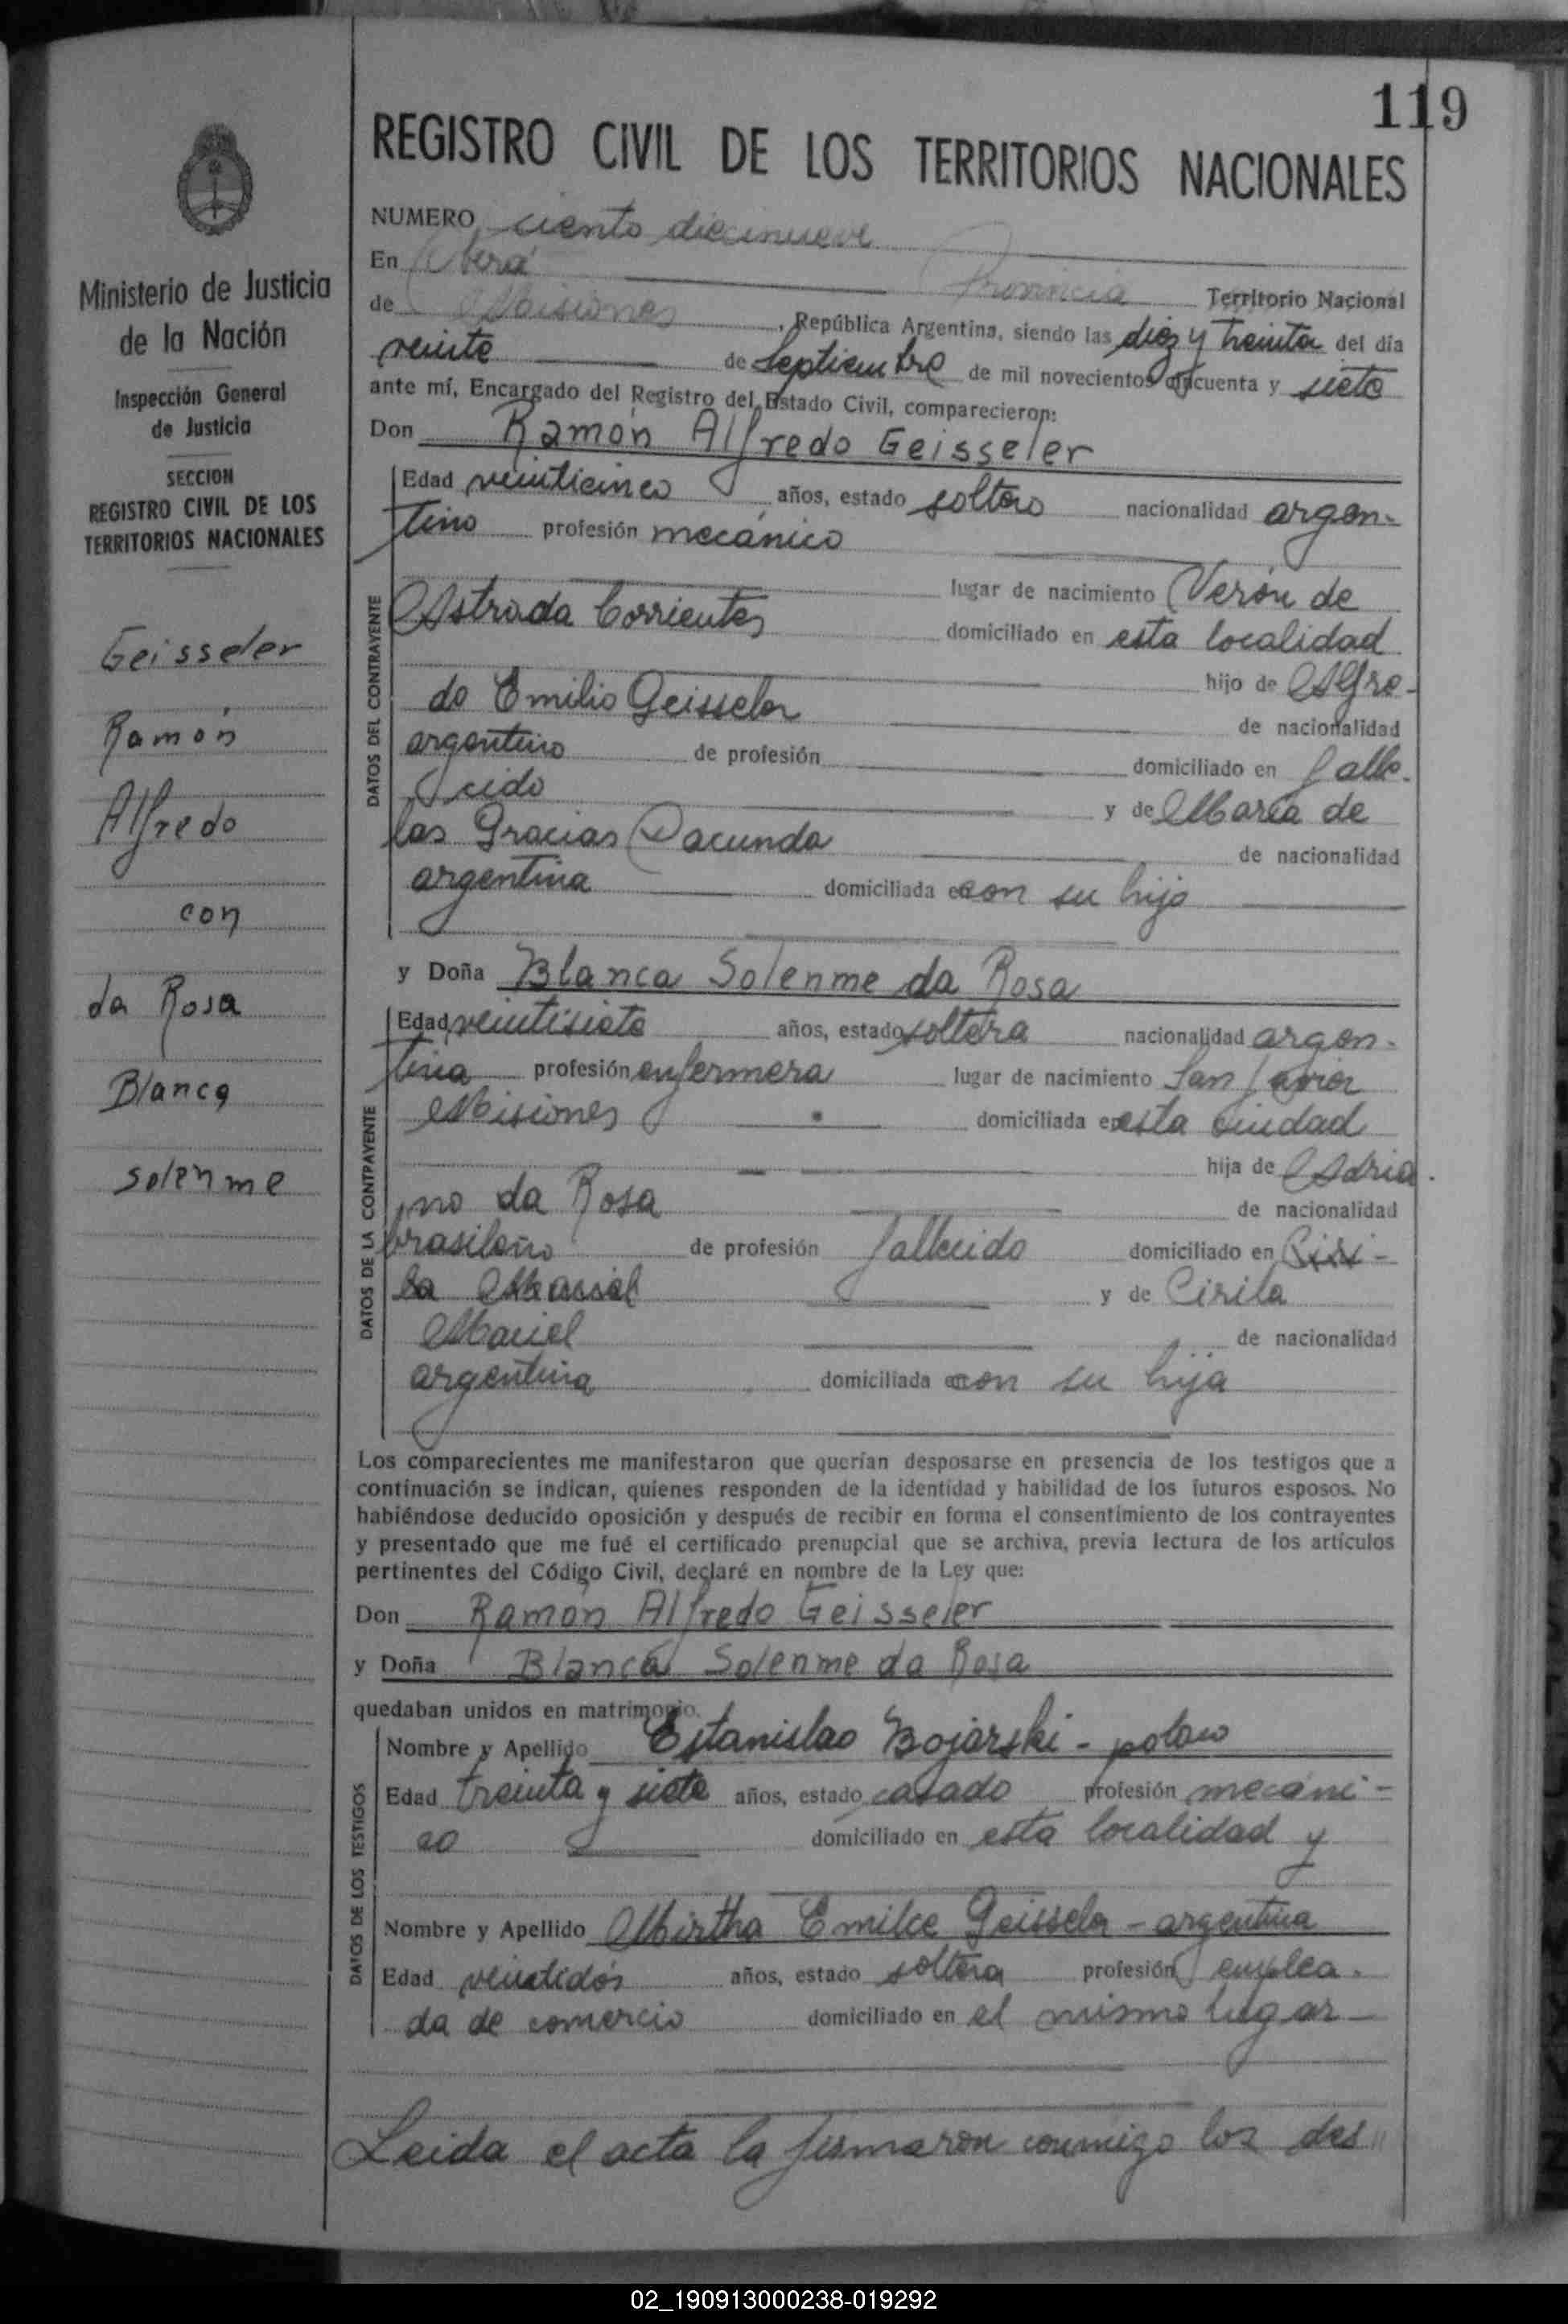 119
REGISTRO CIVIL DE LOS TERRITORIOS NACIONALES
Ministerio de Justicia
de la Nación
Inspección General
de Justicia
SECCION
REGISTRO CIVIL DE LOS
TERRITORIOS NACIONALES
Geisseler
Ramón
Alfredo
con
da Rosa
Blanca
Solenme
NUMERO ciento diecinueve
En Oberá Provincia Territorio Nacional
de Misiones, República Argentina, siendo las diez y treinta del día
veinte de Septiembre de mil novecientos cincuenta y siete
ante mí, Encargado del Registro del Estado Civil, comparecieron:
Don Ramón Alfredo Geisseler
DATOS DEL CONTRAYENTE
Edad veinticinco años, estado soltero nacionalidad argen-
tino profesión mecánico
lugar de nacimiento Verón de
Astrada Corrientes domiciliado en esta localidad
hijo de Alfre-
do Emilio Geisseler de nacionalidad
argentino de profesión domiciliado en falle-
cido y de María de
las Gracias Dacunda de nacionalidad
argentina domiciliada con su hijo
y Doña Blanca Solenme da Rosa
DATOS DE LA CONTRAYENTE
Edad veintisiete años, estado soltera nacionalidad argen-
tina profesión enfermera lugar de nacimiento San Javier
Misiones domiciliada en esta ciudad
hija de Adria-
no da Rosa de nacionalidad
brasileño de profesión fallecido domiciliado en
y de Cirila
Maciel de nacionalidad
argentina domiciliada con su hija
Los comparecientes me manifestaron que querían desposarse en presencia de los testigos que a
continuación se indican, quienes responden de la identidad y habilidad de los futuros esposos. No
habiéndose deducido oposición y después de recibir en forma el consentimiento de los contrayentes
y presentado que me fué el certificado prenupcial que se archiva, previa lectura de los artículos
pertinentes del Código Civil, declaré en nombre de la Ley que:
Don Ramón Alfredo Geisseler
y Doña Blanca Solenme da Rosa
quedaban unidos en matrimonio.
DATOS DE LOS TESTIGOS
Nombre y Apellido Estanislao Bojarski - polaco
Edad treinta y siete años, estado casado profesión mecáni-
co domiciliado en esta localidad y
Nombre y Apellido Mirtha Emilce Geisseler - argentina
Edad veintidós años, estado soltera profesión emplea-
da de comercio domiciliado en el mismo lugar -
Leida el acta la firmaron conmigo los des
02_190913000238-019292